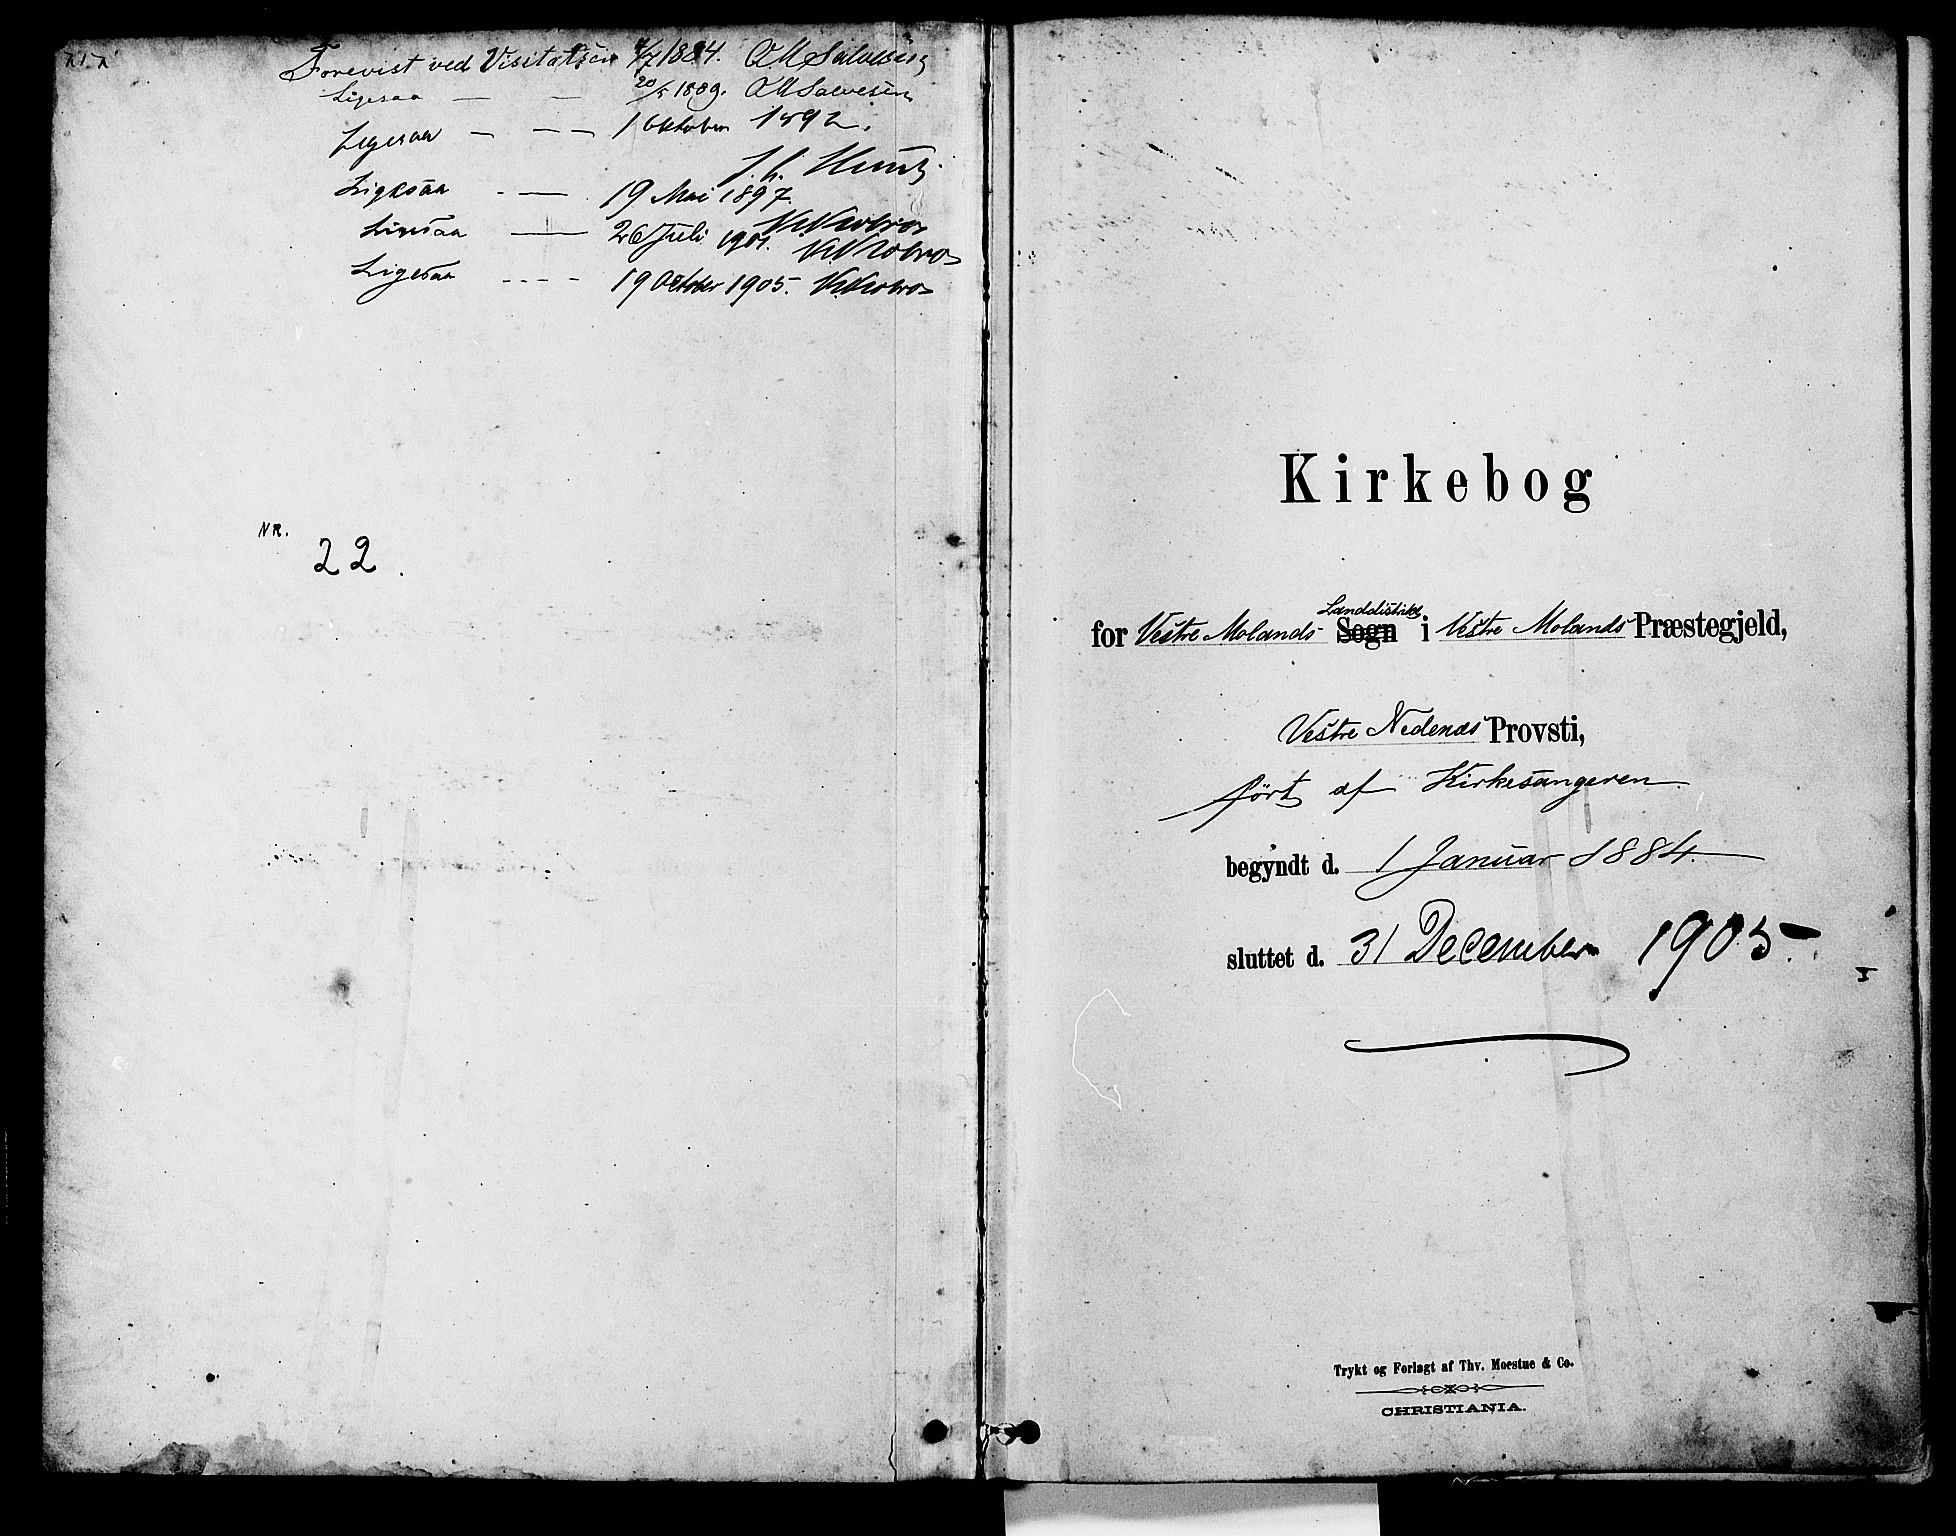 Forevist ved Visitatsen 4/7 1884. O M Salvesen
Ligesaa — — 20/5 1889. O M Salvesen
Ligesaa — — — 1 Oktober 1892.
Ligesaa - — 19 Mai 1897.
Ligesaa — 26 Juli 1901.
Ligesaa - - - - 19 October 1905.
NR.
22.
Kirkebog
Landdistrikt
for Vestre Molands Sogn i Vestre Molands Præstegjeld,
Vestre Nedenæs Provsti,
ført af Kirkesangeren
begyndt d. 1 Januar 1884.
sluttet d. 31 December 1905.
Trykt og Forlagt af Thv. Moestue & Co.
CHRISTIANIA.